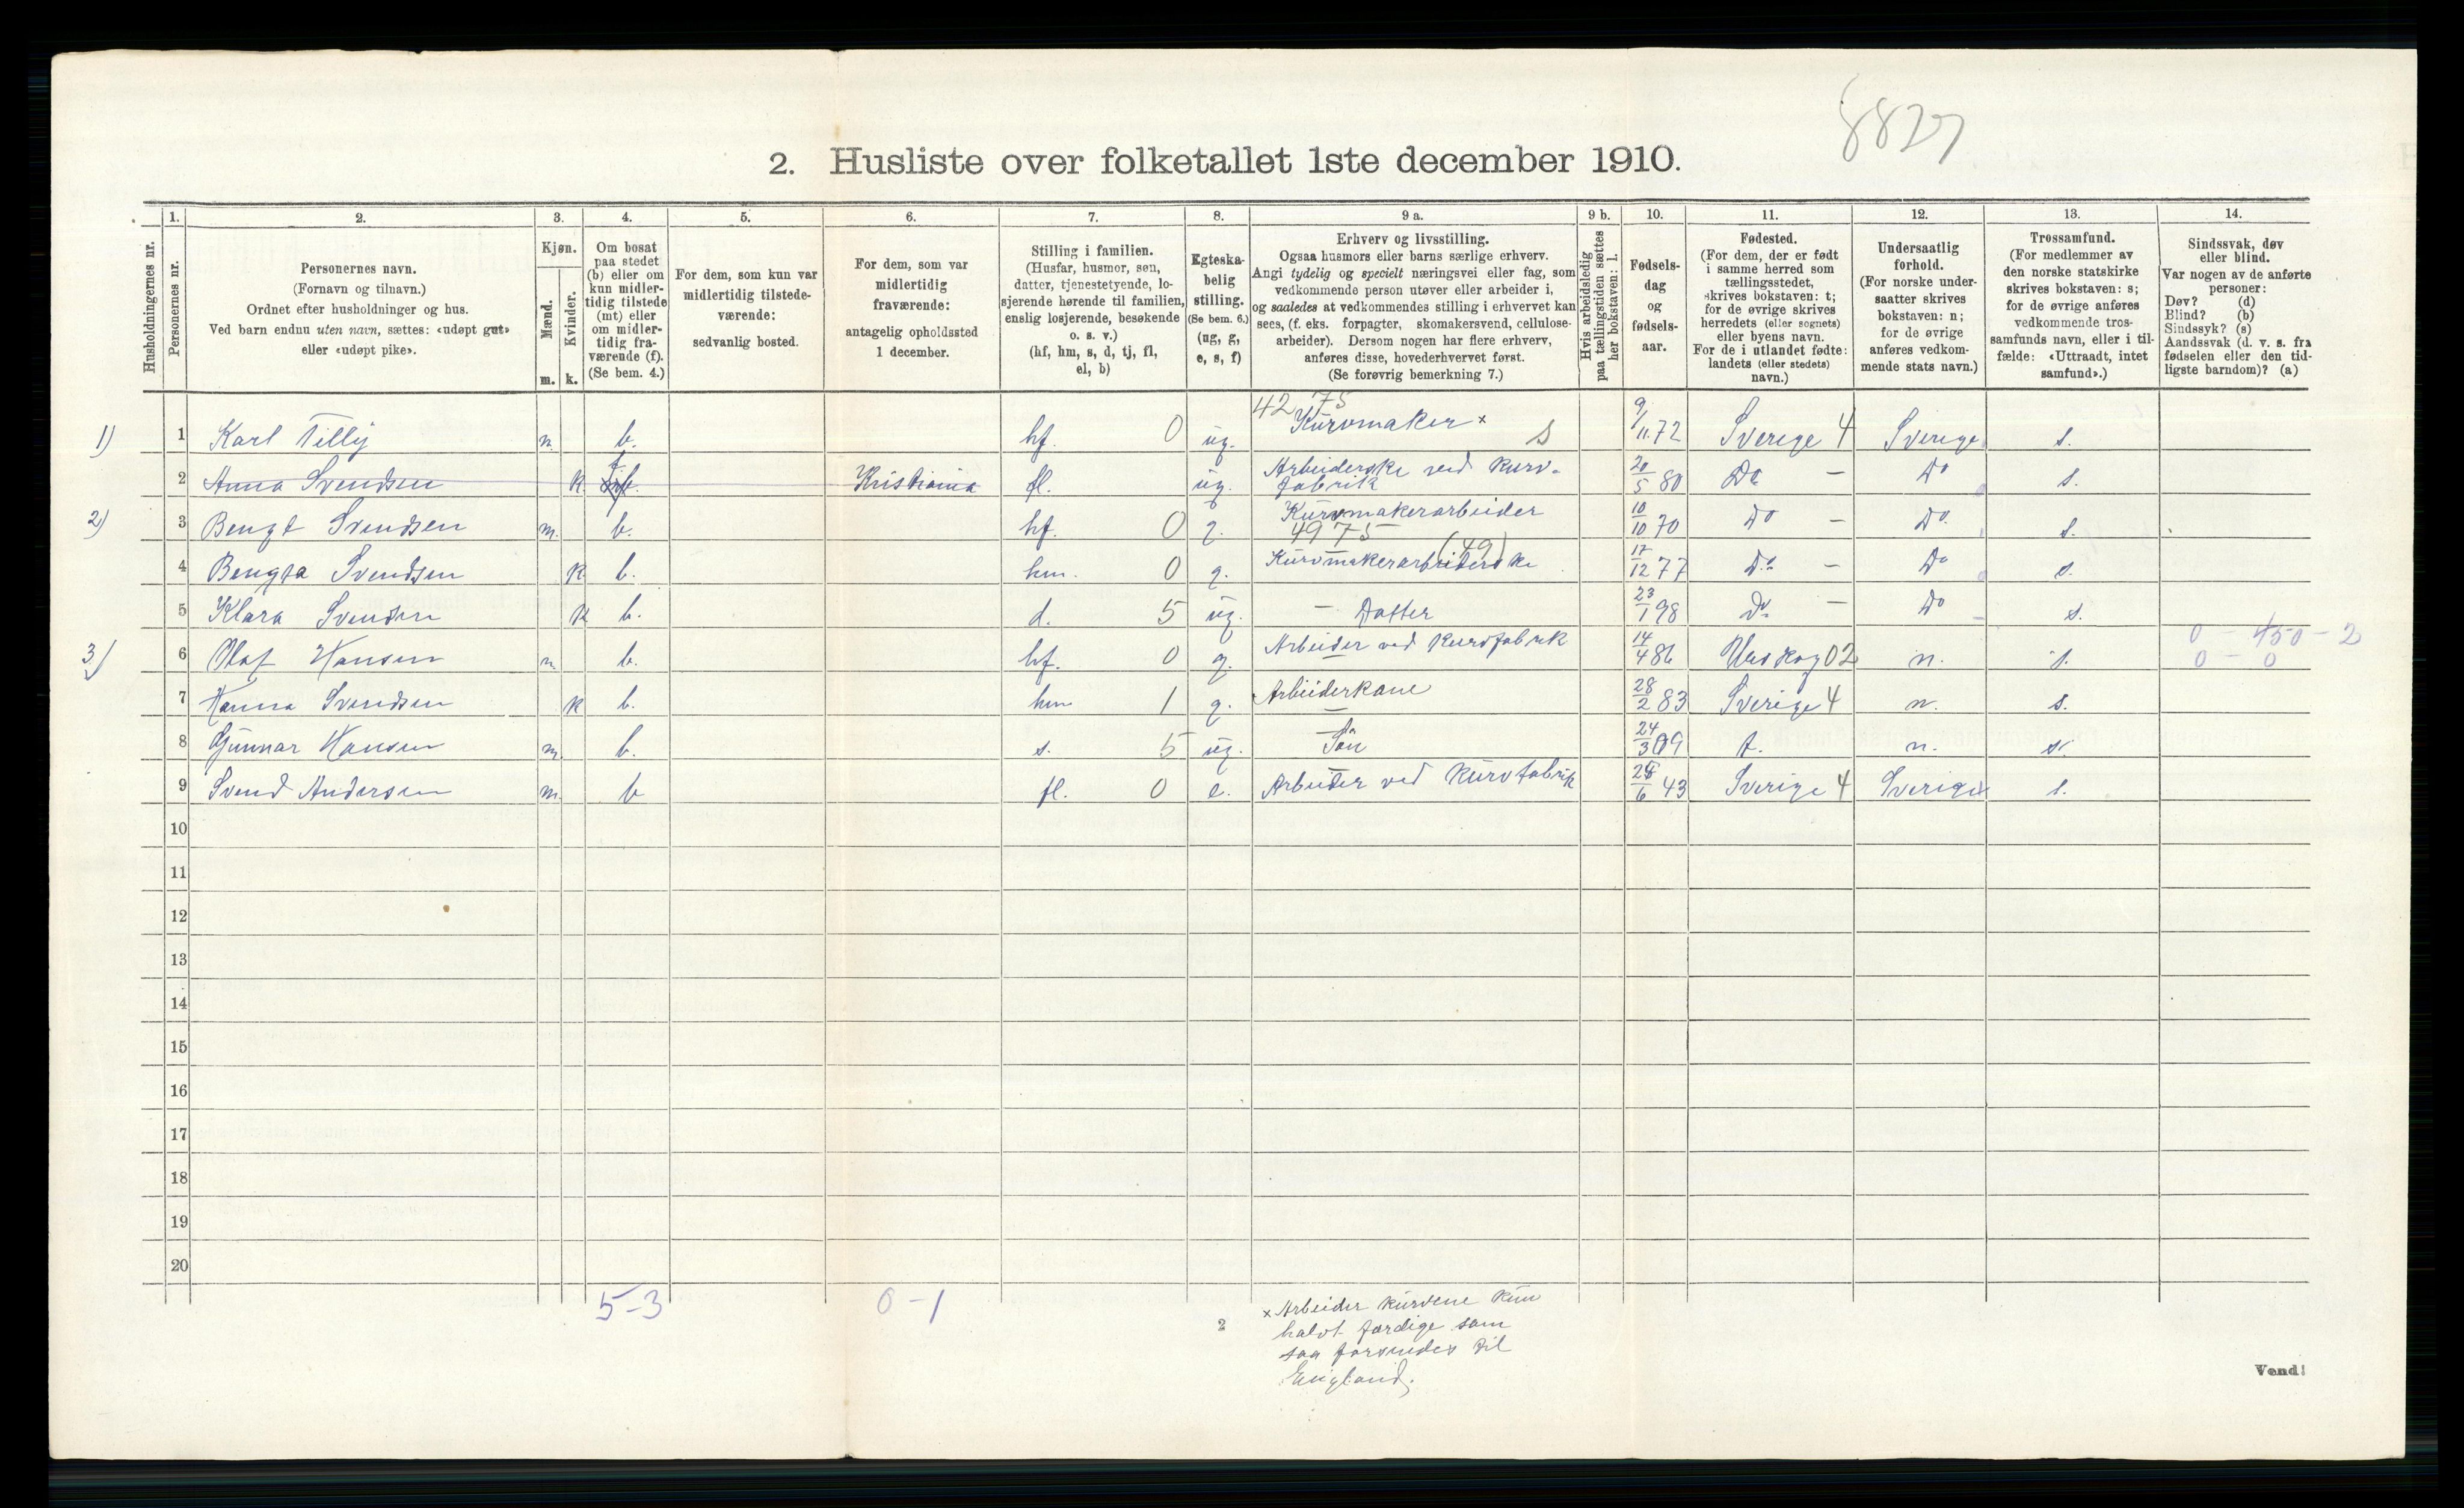 8827
2. Husliste over folketallet 1ste december 1910.
Husholdningernes nr.
1.
Personernes nr.
2.
Personernes navn.
(Fornavn og tilnavn.)
Ordnet efter husholdninger og hus.
Ved barn endnu uten navn, sættes: «udøpt gut»
eller «udøpt pike».
3.
Kjøn.
Mænd.
Kvinder.
m. k.
4.
Om bosat
paa stedet
(b) eller om
kun midler-
tidig tilstede
(mt) eller
om midler-
tidig fra-
værende (f).
(Se bem. 4.)
5.
For dem, som kun var
midlertidig tilstede-
værende:
sedvanlig bosted.
6.
For dem, som var
midlertidig
fraværende:
antagelig opholdssted
1 december.
7.
Stilling i familien.
(Husfar, husmor, søn,
datter, tjenestetyende, lo-
sjerende hørende til familien,
enslig losjerende, besøkende
o. s. v.)
(hf, hm, s, d, tj, fl,
el, b)
8.
Egteska-
belig
stilling.
(Se bem. 6.)
(ug, g,
e, s, f)
9 a.
Erhverv og livsstilling.
Ogsaa husmors eller barns særlige erhverv.
Angi tydelig og specielt næringsvei eller fag, som
vedkommende person utøver eller arbeider i,
og saaledes at vedkommendes stilling i erhvervet kan
sees, (f. eks. forpagter, skomakersvend, cellulose-
arbeider). Dersom nogen har flere erhverv,
anføres disse, hovederhvervet først.
(Se forøvrig bemerkning 7.)
9 b.
Hvis arbeidsledig
paa tællingstiden sættes
her bokstaven: l.
10.
Fødsels-
dag
og
fødsels-
aar.
11.
Fødested.
(For dem, der er født
i samme herred som
tællingsstedet,
skrives bokstaven: t;
for de øvrige skrives
herredets (eller sognets)
eller byens navn.
For de i utlandet fødte:
landets (eller stedets)
navn.)
12.
Undersaatlig
forhold.
(For norske under-
saatter skrives
bokstaven: n;
for de øvrige
anføres vedkom-
mende stats navn.)
13.
Trossamfund.
(For medlemmer av
den norske statskirke
skrives bokstaven: s;
for de øvrige anføres
vedkommende tros-
samfunds navn, eller i til-
fælde: «Uttraadt, intet
samfund».)
14.
Sindssvak, døv
eller blind.
Var nogen av de anførte
personer:
Døv? (d)
Blind? (b)
Sindssyk? (s)
Aandssvak (d. v. s. fra
fødselen eller den tid-
ligste barndom)? (a)
42 75
1) 1 Karl Tilly m. b. hf. 0 ug. Kurvmaker × s 9/11 72 Sverige 4 Sverige s.
2 Anna Svendsen k f Kristiania fl. ug. Arbeiderske ved kurv-
fabrik 20/5 80 Do — Do s.
2) 3 Bengt Svendsen m. b. hf. 0 g. Kurvmakerarbeider 10/10 70 Do — Do s.
4975
4 Bengta Svendsen k b. hm. 0 g. Kurvmakerarbeiderske (49) 17/12 77 Do — Do s.
5 Klara Svendsen k b. d. 5 ug. — Datter 23/1 98 Do — Do s.
3) 6 Olaf Hansen m. b. hf. 0 g. Arbeider ved kurvfabrik 14/4 86 Urskog 02 n. s. 0 — 450 — 2
0 — 0
7 Hanna Svendsen k b. hm 1 g. Arbeiderkone 28/2 83 Sverige 4 n. s.
8 Gunnar Hansen m. b. s. 5 ug. Søn 24/3 09 t. n. s.
9 Svend Andersen m. b fl. 0 e. Arbeider ved kurvfabrik 28/6 43 Sverige 4 Sverige s.
10
11
12
13
14
15
16
17
18
19
20
5-3
0-1
2
× Arbeider kurvene kun
halvt færdige som
saa forsendes til
England.
Vend!